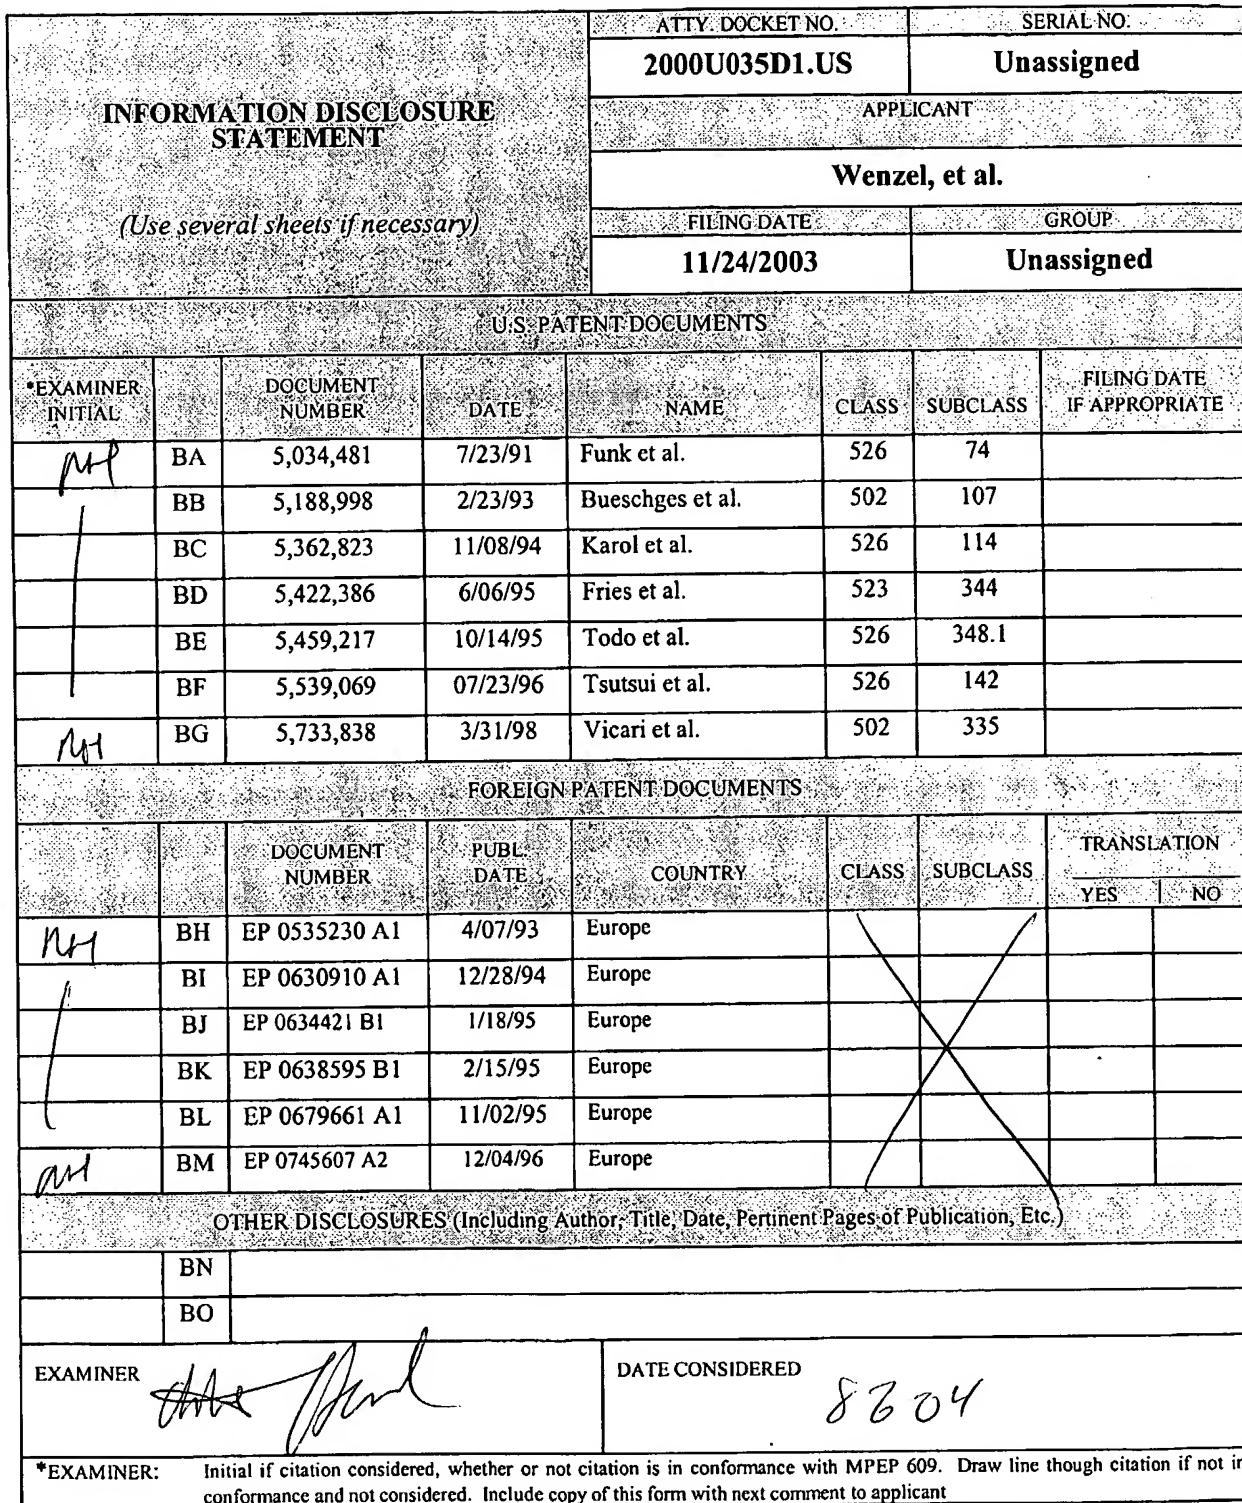 ATTY. DOCKET NO. SERIAL NO.
2000U035D1.US Unassigned
INFORMATION DISCLOSURE
STATEMENT
(Use several sheets if necessary)
APPLICANT
Wenzel, et al.
FILING DATE GROUP
11/24/2003 Unassigned
U.S. PATENT DOCUMENTS
*EXAMINER INITIAL DOCUMENT NUMBER DATE NAME CLASS SUBCLASS FILING DATE IF APPROPRIATE
BA 5,034,481 7/23/91 Funk et al. 526 74
BB 5,188,998 2/23/93 Bueschges et al. 502 107
BC 5,362,823 11/08/94 Karol et al. 526 114
BD 5,422,386 6/06/95 Fries et al. 523 344
BE 5,459,217 10/14/95 Todo et al. 526 348.1
BF 5,539,069 07/23/96 Tsutsui et al. 526 142
BG 5,733,838 3/31/98 Vicari et al. 502 335
FOREIGN PATENT DOCUMENTS
DOCUMENT NUMBER PUBL. DATE COUNTRY CLASS SUBCLASS TRANSLATION
YES NO
BH EP 0535230 A1 4/07/93 Europe
BI EP 0630910 A1 12/28/94 Europe
BJ EP 0634421 B1 1/18/95 Europe
BK EP 0638595 B1 2/15/95 Europe
BL EP 0679661 A1 11/02/95 Europe
BM EP 0745607 A2 12/04/96 Europe
OTHER DISCLOSURES (Including Author, Title, Date, Pertinent Pages of Publication, Etc.)
BN
BO
EXAMINER DATE CONSIDERED
*EXAMINER: Initial if citation considered, whether or not citation is in conformance with MPEP 609. Draw line though citation if not in
conformance and not considered. Include copy of this form with next comment to applicant